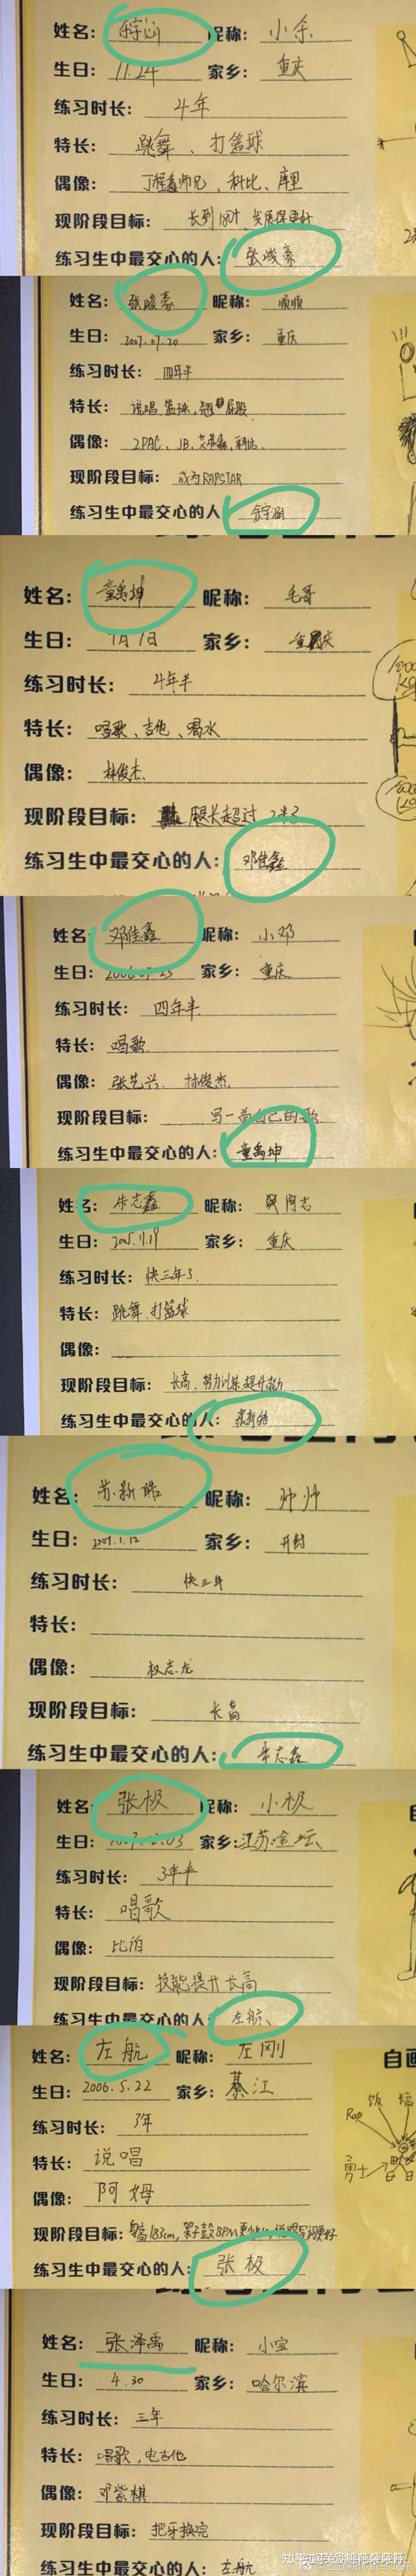 姓名: 余宇涵 昵称: 小余
生日: 11.24 家乡: 重庆
练习时长: 4年
特长: 跳舞、打篮球
偶像: 丁程鑫师兄、科比、库里
现阶段目标: 长到187, 发展得更好
练习生中最交心的人: 张峻豪
姓名: 张峻豪 昵称: 顺顺
生日: 2007.07.20 家乡: 重庆
练习时长: 四年半
特长: 说唱, 篮球, 翘屁股
偶像: 2PAC、JB、艾弗森、科比
现阶段目标: 成为RAPSTAR
练习生中最交心的人: 余宇涵
姓名: 童禹坤 昵称: 毛哥
生日: 1月1日 家乡: 重庆
练习时长: 4年半
特长: 唱歌、吉他、喝水
偶像: 林俊杰
现阶段目标: 腿长超过2米3
练习生中最交心的人: 邓佳鑫
姓名: 邓佳鑫 昵称: 小邓
生日: 家乡: 重庆
练习时长: 四年半
特长: 唱歌
偶像: 张艺兴、林俊杰
现阶段目标: 写一首自己的歌
练习生中最交心的人: 童禹坤
姓名: 朱志鑫 昵称: 同志
生日: 2005.11.19 家乡: 重庆
练习时长: 快三年了
特长: 跳舞、打篮球
偶像:
现阶段目标: 长高、努力训练、提升能力
练习生中最交心的人: 苏新皓
姓名: 苏新皓 昵称: 帅帅
生日: 家乡: 开封
练习时长: 快三年
特长:
偶像: 权志龙
现阶段目标: 长高
练习生中最交心的人: 朱志鑫
姓名: 张极 昵称: 小极
生日: 家乡: 江苏·金坛
练习时长: 3年半
特长: 唱歌
偶像: 比伯
现阶段目标: 技能提升 长高
练习生中最交心的人: 左航
姓名: 左航 昵称: 左刚
自画
生日: 2006.5.22 家乡: 綦江
Rap 饭
练习时长: 3年
特长: 说唱
勇士
偶像: 阿姆
现阶段目标: 183cm,
练习生中最交心的人: 张极
姓名: 张泽禹 昵称: 小宝
生日: 4.30 家乡: 哈尔滨
练习时长: 三年
特长: 唱歌, 电吉他
偶像: 邓紫棋
现阶段目标: 把牙换完
练习生中最交心的人: 左航